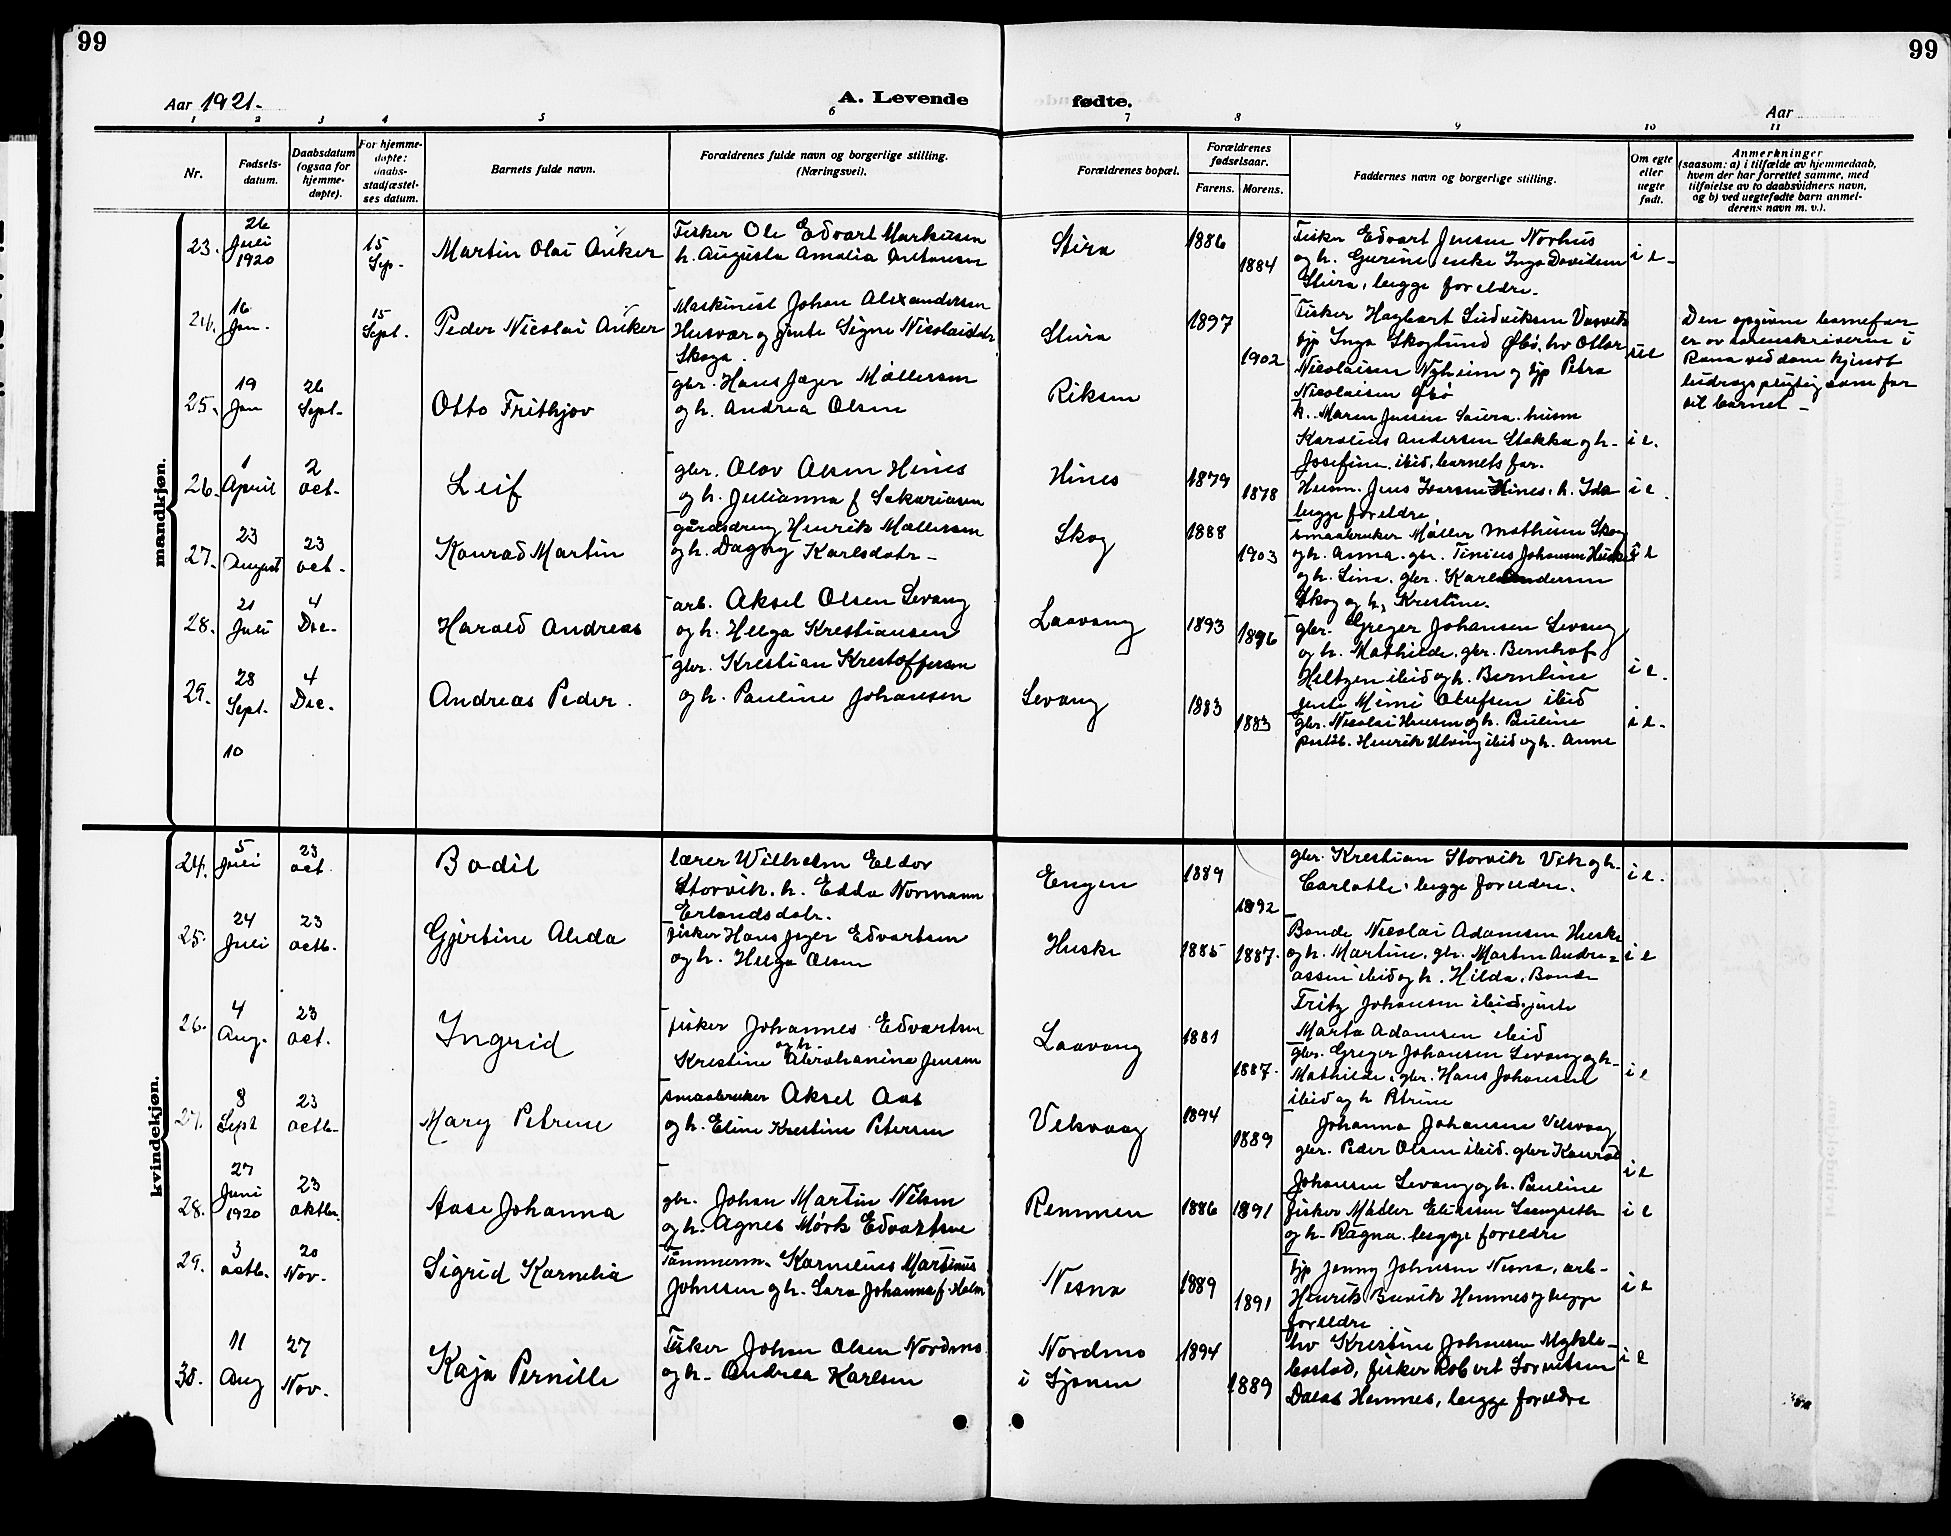 99
99
Aar 1921.
A. Levende
fødte.
Aar
1 2 3 4 5 6 7 8 9 10 11
Nr.
Fødsels-
datum.
Daabsdatum
(ogsaa for
hjemme-
døpte).
For hjemme-
døpte:
daabs-
stadfæstel-
ses datum.
Barnets fulde navn.
Forældrenes fulde navn og borgerlige stilling.
(Næringsvei).
Forældrenes bopæl.
Forældrenes
fødselsaar.
Farens. Morens.
Faddernes navn og borgerlige stilling.
Om egte
eller
uegte
født.
Anmerkninger
(saasom: a) i tilfælde av hjemmedaab,
hvem der har forrettet samme, med
tilføielse av to daabsvidners navn,
og b) ved uegtefødte barn anmel-
derens navn m. v.).
mandkjøn.
23.
26
Juli
1920
15
Sep.
Martin Olai Anker
Fisker Ole Edvart Markusen
h. Augusta Amalia Antonsen
Stira
1886
1884
Fisker Edvart Jensen Norhus
og h. Gurine, enke Inga Davidsen
Stiura, begge foreldre.
i e
24.
16
Jan.
15
Sept.
Peder Nicolai Anker
Maskinist Johan Alexandersen
Husvær og jente Signe Nicolaisdtr
Skoga.
Stiura
1897
1902
Fisker Hagbart Ludviksen
tjp Inga Skoglund Øbø, hv Ottar
Nicolaisen Nyheim og tjp Petra
Nicolaisen Øbø
u e
Den opgivne barnefar
er av sorenskriveren i
Rana ved dom kjendt
bidragspligtig som far
til barnet –
25.
19
Jan
26
Sept.
Otto Frithjov
gbr. Hans Jæger Møllersen
og h. Andrea Olsen
Riksen
h. Maren Jensen Saura. husm
Karolius Andersen Stokka og h.
Josefine ibid, barnets far.
i e.
26.
1
April
2
oct.
Leif
gbr. Olav Olsen Hines
og h. Julianna f Sakariasen
Hines
1879
1878
Husm. Jens Iversen Hines. h. Ida
begge foreldre
i e.
27.
23
August
23
oct.
Konrad Martin
gårdsdreng Henrik Møllersen
og h. Dagny Karlsdatr –
Skog
1888
1903
smaabruker Møller Mathisen Skog
og h. Anna. gbr. Tinius Johansen Huske
og h. Lina. gbr. Karl Andersen
Skog og h. Krestine.
i e
28.
21
Juli
4
Dec.
Harald Andreas
arb. Aksel Olsen Levang
og h. Helga Krestiansen
Laavang
1893
1896
gbr. Greger Johansen Levang
og h. Mathilde. gbr. Bernhof
Heltzen ibid og h. Bernline
jente Mimi Olufsen ibid
i e.
29.
28
Sept.
4
Dec.
Andreas Peder.
gbr. Krestian Krestoffersen
og h. Pauline Johansen
Levang
1883
1883
gbr. Nicolai Hansen og h. Pauline
postb. Henrik Ulving ibid og h. Anne
i e.
10
kvindekjøn.
24.
5
Juli
23
oct.
Bodil
lærer Wilhelm Eldor
Storvik. h. Edda Normann
Erlandsdatr.
Engen
1889
1892
gbr. Krestian Storvik Vik og h.
Carlotte. begge foreldre.
i e.
25.
24
Juli
23
octb.
Gjertine Alida
fisker Hans Jæger Edvartsen
og h. Helga Olsen
Huske
1885
1887.
Bonde Nicolai Adamsen Huske
og h. Martine. gbr. Martin Andre-
assen ibid og h. Hilda. Bonde
Fritz Johansen ibid. jente
Marta Adamsen ibid
i e
26.
4
Aug.
23
oct.
Ingrid
fisker Johannes Edvartsen
og h.
Krestine Abrahanina Jensen
Laavang
1881
1887.
gbr. Greger Johansen Levang og h.
Mathilde. gbr. Hans Johansen
ibid og h Petrine
i e
27.
8
Sept
23
octb.
Mary Petrine
smaabruker Aksel Aas
og h. Eline Krestine Petersen
Vikvaag
1894
1889
Johanna Johansen Vikvaag
gbr. Peder Olsen ibid. gbr Konrad
Johansen Levang og h. Pauline
i e
28.
27
Juni
1920
23
oktbr.
Aase Johanna
gbr. Johan Martin Nilsen
og h. Agnes Mørk Edvartsen
Remmen
1886
1891
fisker Møller Eliassen
og h. Ragna. begge foreldre
i e
29.
3
octb.
20
Nov.
Sigrid Karnelia
Tømmerm. Karnelius Martinus
Johnsen og h. Sara Johanna f. Holm
Nesna
1889
1891
tjp Jenny Johnsen Nesna, arb.
Henrik Buvik Hemnes og begge
foreldre
i e
30.
11
Aug
27
Nov.
Kaja Pernille
Fisker Johan Olsen Nordmo
og h. Andrea Karlsen
Nordmo
i Sjonen
1894
1889
hv Krestine Johansen Mykle-
bostad, fisker Robert
Dalas Hemnes, begge foreldre
i e